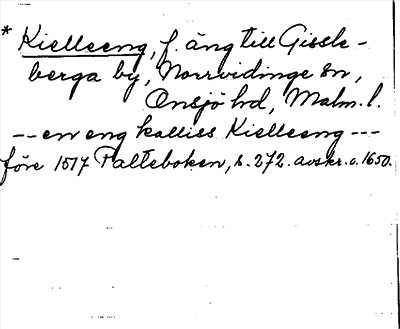 * Kielleeng, f. äng till Gissle-
berga by, Norrvidinge sn,
Onsjö hd, Malm. l.
-- en eng kalliss Kielleeng ---
före 1517 Palteboken, s. 272. avskr. c. 1650.